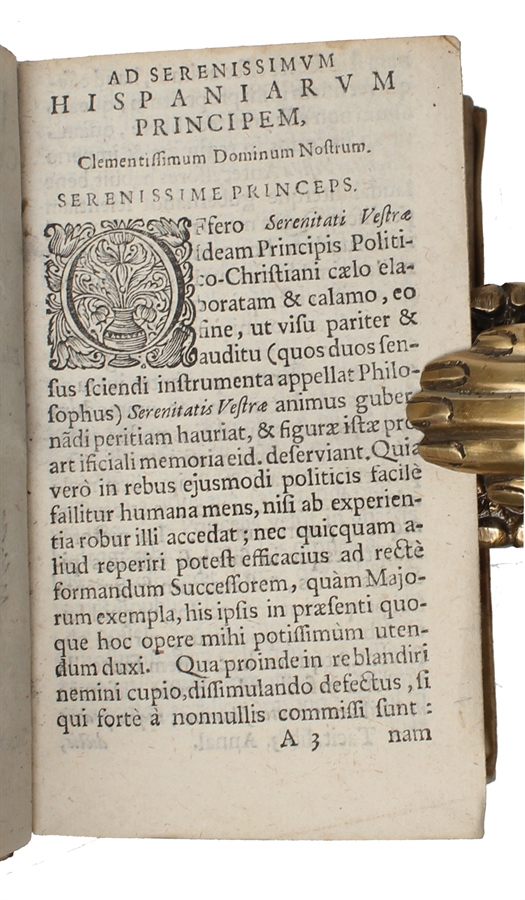 AD SERENISSIMVM
HISPANIARVM
PRINCIPEM,
Clementiſſimum Dominum Noſtrum.
SERENISSIME PRINCEPS.
OFfero Serenitati Veſtræ
ideam Principis Politi-
co-Chriſtiani cælo ela-
boratam & calamo, eo
fine, ut viſu pariter &
auditu (quos duos ſen-
ſus ſciendi inſtrumenta appellat Philo-
ſophus) Serenitatis Veſtræ animus guber-
nãdi peritiam hauriat, & figuræ iſtæ pro
art ificiali memoria eid. deſerviant. Quia
verò in rebus ejusmodi politicis facilè
fallitur humana mens, niſi ab experien-
tia robur illi accedat; nec quicquam a-
liud reperiri poteſt efficacius ad rectè
formandum Succeſſorem, quàm Majo-
rum exempla, his ipſis in præſenti quo-
que hoc opere mihi potiſſimùm uten-
dum duxi. Qua proinde in re blandiri
nemini cupio, diſſimulando defectus, ſi
qui fortè à nonnullis commiſſi ſunt:
A 3 nam